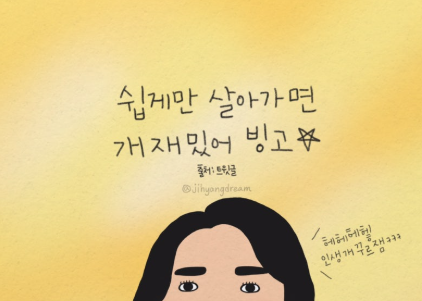 쉽게만 살아가면
개재밌어 빙고☆
출처:트윗글
@jihyangdream
헤헤헤헿
인생개꾸르잼ㅋㅋㅋ